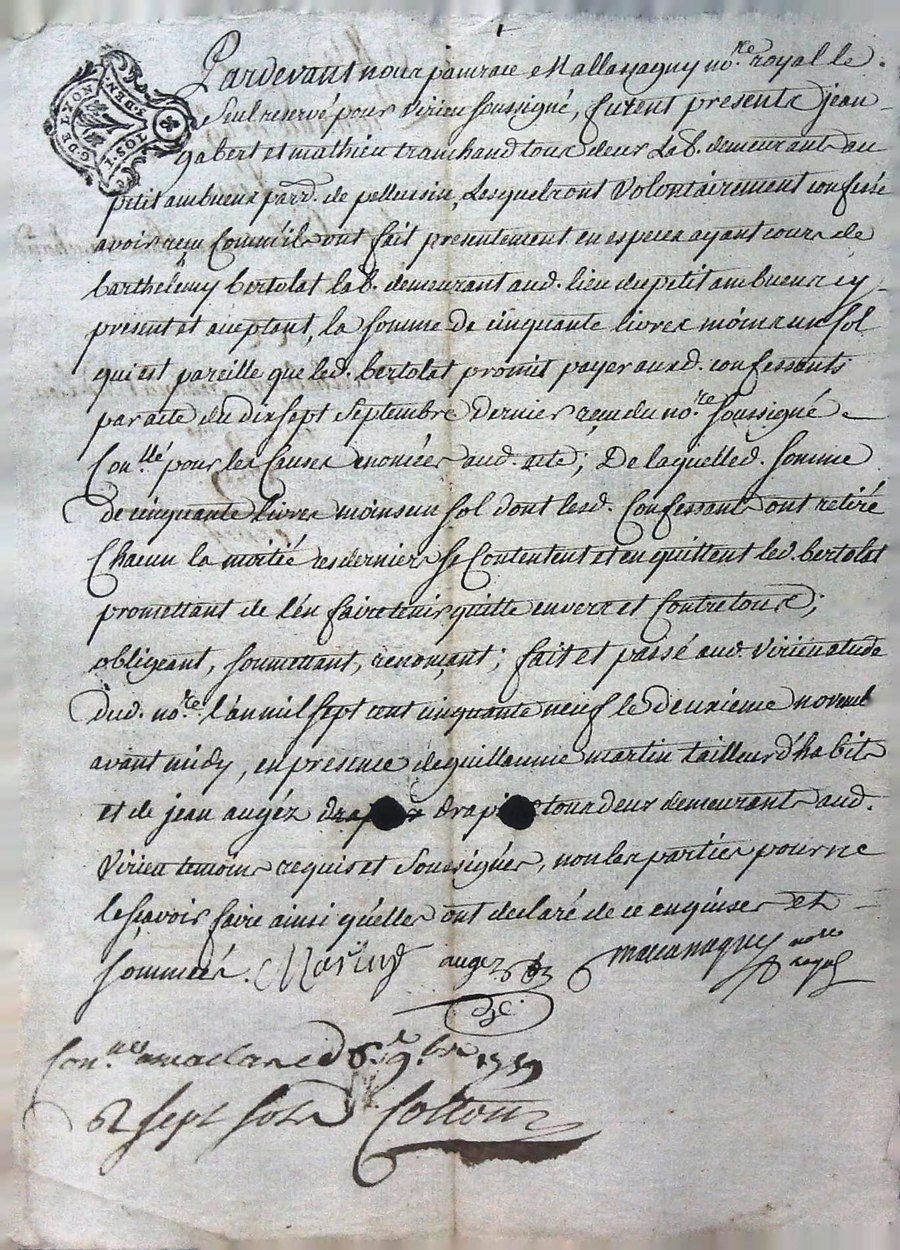 G. DE LYON
10S. 1. DEN.
Pardevant nous pancrace Mallassagny no.re royal le
seul reservé pour virieu soussigné, furent presents jean
gabert et mathieu tranchand tous deux lab. demeurants au
petit ambueux par. de pellussin, Lesquels ont volontairement confessé
avoir reçu Comme ils ont fait presentement en especes ayant cours de
barthelemy bertolat lab. demeurant aud. lieu du petit ambueux cy
present et aceptant, la somme de cinquante livres moins un sol
qui est pareille que led. bertolat promit payer auxd. confessants
par acte du dix sept septembre dernier reçu du no.re soussigné
Con.llé pour les causes enoncées aud. acte; De laquelle d. somme
de cinquante livres moins un sol dont lesd. Confessants ont retiré
Chacun la moitié ces derniers se Contentent et en quittent led. bertolat
promettant de l'en faire tenir quitte envers et Contre tous;
obligeant, soumettant, renonçant; fait et passé aud. virieu etude
dud. no.re l'an mil sept cent cinquante neuf le deuxieme novemb
avant midy, en presence de guillaume martin tailleur d'habits
et de jean augéz drapier tondeur demeurants aud.
virieu temoins requis et soussignés, non les parties pour ne
le sçavoir faire ainsi qu'elles ont declaré de ce enquises et
sommées. Martin augez mallassagny no.re royal
Con.llé a maclas le d 6.e 9.bre 1759
R sept sols Cotton